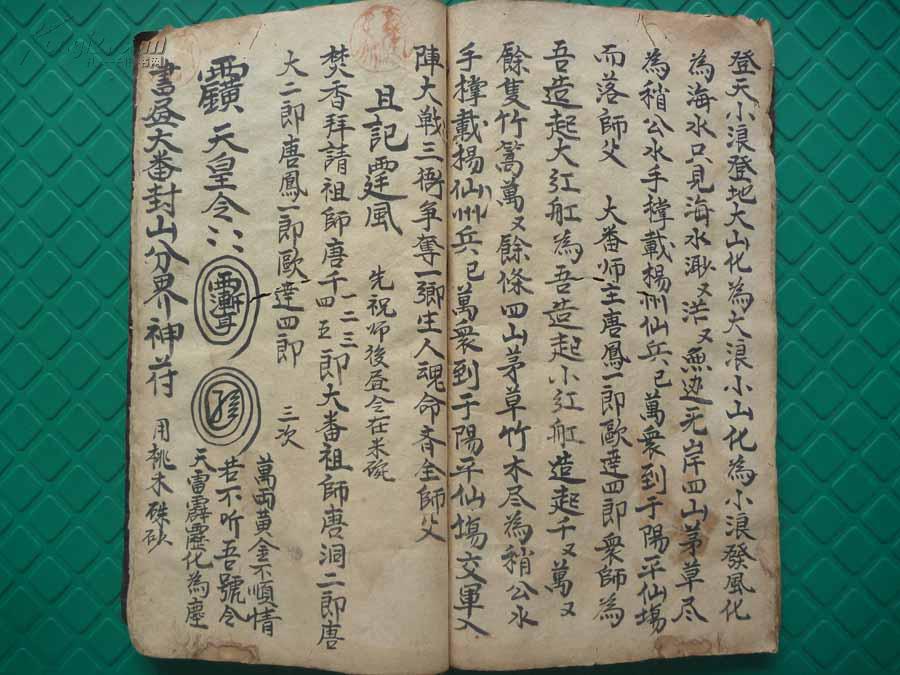 登天小浪登地大山化為大浪小山化為小浪發風化
為海水只見海水渺又茫又無边无岸四山茅草尽
為稍公水手撑載楊州仙兵已萬衆到于陽平仙塲
而落師父 大番师主唐鳳一郎歐達四郎衆師為
吾造起大江舡為吾造起小江舡造起千又萬又
餘隻竹篙萬又餘條四山茅草竹木尽為稍公水
手撑載楊仙州兵已萬衆到于陽平仙塲交軍又
陣大戦三衙争奪一鄉生人魂命斉全師父
且記霆風 先祝师後昼令在米碗
焚香拜請祖師唐千四五一二三郎大番祖師唐洞二郎唐
大二郎唐鳳一郎歐達四郎 三次
天皇令
萬両黄金不順情
若不听吾號令
天雷霹靂化為塵
書昼大番封山分界神符 用桃木硃砂